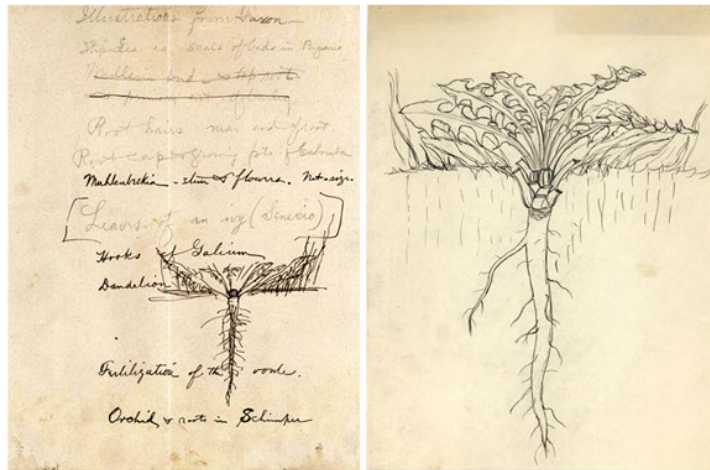 Illustrations from Faxon
Stipules as scales of buds in
Root hairs, near and front.
Root cap & growing pts. of
Muhlenbekia - stem & flowers. Nat. size.
[Leaves of an ivy (Senecio)]
Hooks of Galium
Dandelion
Fertilization of the ovule.
Orchid & roots in Schimper